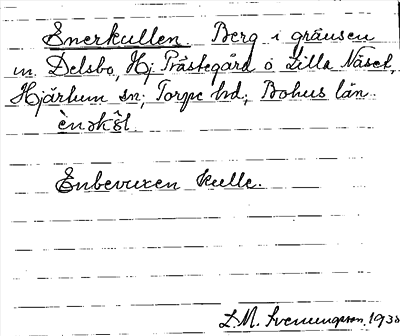 Enerkullen. Berg i gränsen
m. Delsbo, Hj. Prästegård o Lilla Näset,
Hjärtum sn; Torpe hd; Bohus län.
Enbevuxen kulle.
L. M. Svenungsson 193